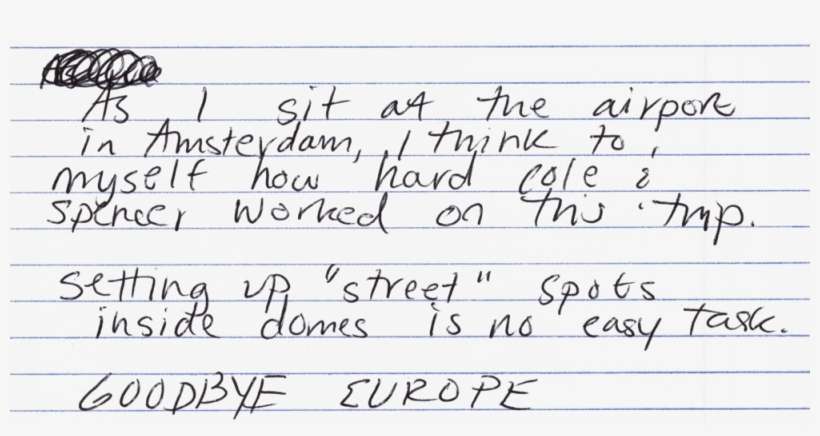 As I sit at the airport
in Amsterdam, I think to
myself how hard Cole &
Spencer worked on this trip.
Setting up "street" spots
inside domes is no easy task.
GOODBYE EUROPE